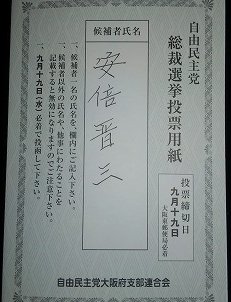 自由民主党
総裁選挙投票用紙
投票締切日
九月十九日
大阪東郵便局必着
候補者氏名
安倍晋三
一、候補者一名の氏名を、欄内にご記入下さい。
一、候補者以外の氏名や、他事にわたることを
記載すると無効になりますのでご注意下さい。
一、九月十九日(水)必着で投函して下さい。
自由民主党大阪府支部連合会